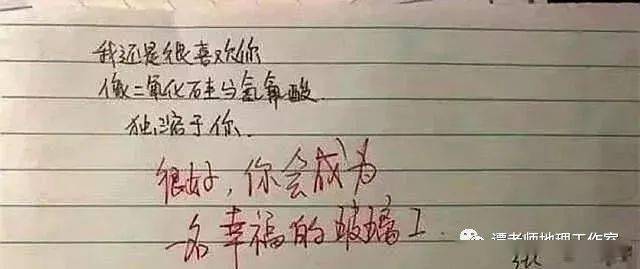 我还是很喜欢你
像二氧化硅与氢氟酸
独溶于你.
很好，你会成为
一名幸福的玻璃工.
漂老师地理工作室